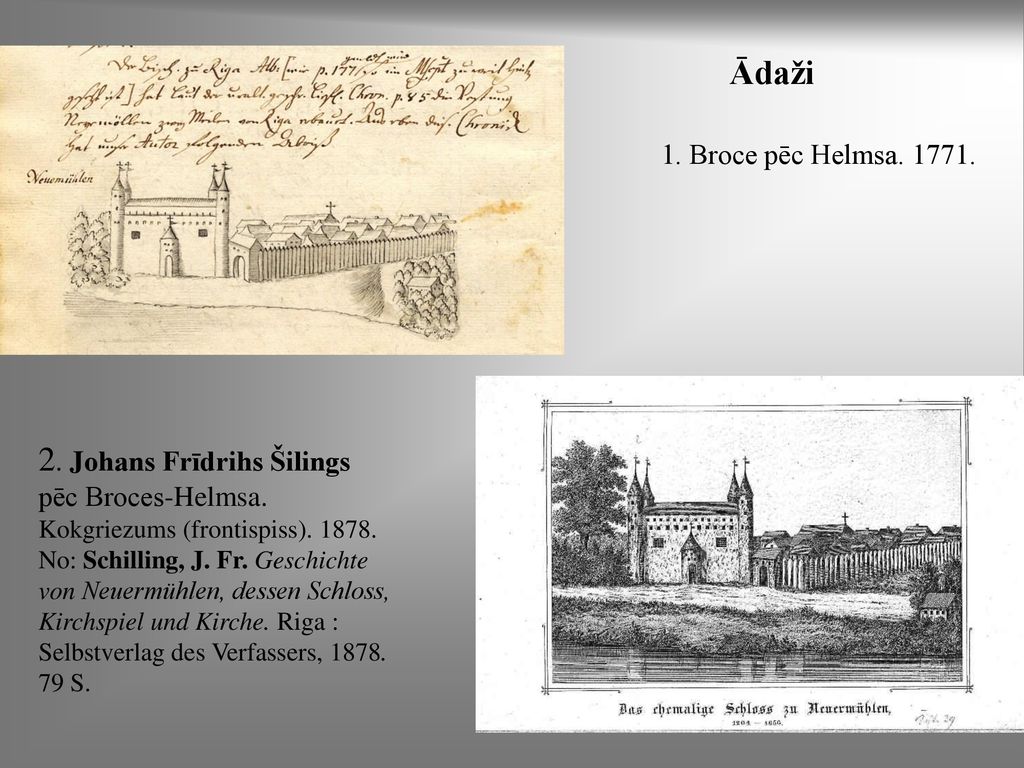 Ādaži
1. Broce pēc Helmsa. 1771.
Der Bisch. zu Riga Alb: [wie p. 177
hat laut der uralt. geschr. Liefl. Chron. p. 85 die Vestung
Neuemöllen zwey Meilen von Riga erbauet. Aus eben dies. Chronick
hat unser Autor folgenden Abriß
Neuemühlen
2. Johans Frīdrihs Šilings
pēc Broces-Helmsa.
Kokgriezums (frontispiss). 1878.
No: Schilling, J. Fr. Geschichte
von Neuermühlen, dessen Schloss,
Kirchspiel und Kirche. Riga :
Selbstverlag des Verfassers, 1878.
79 S.
Das ehemalige Schloss zu Neuermühlen,
1204 — 1656.